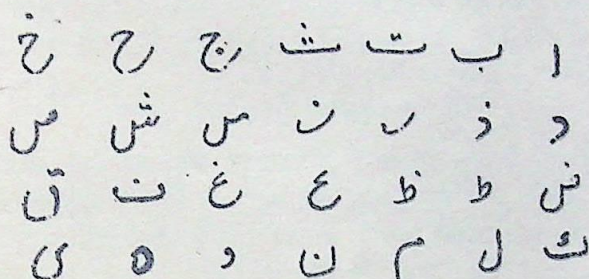 ا ب ت ث ج ح خ
د ذ ر ز س ش ص
ض ط ظ ع غ ف ق
ك ل م ن و ه ي